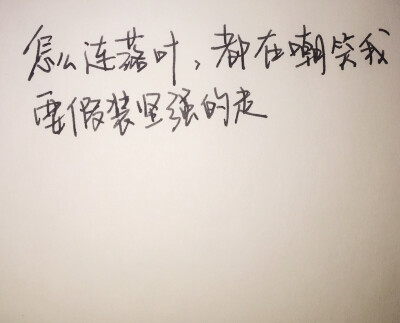 怎么连落叶，都在嘲笑我
要假装坚强的走